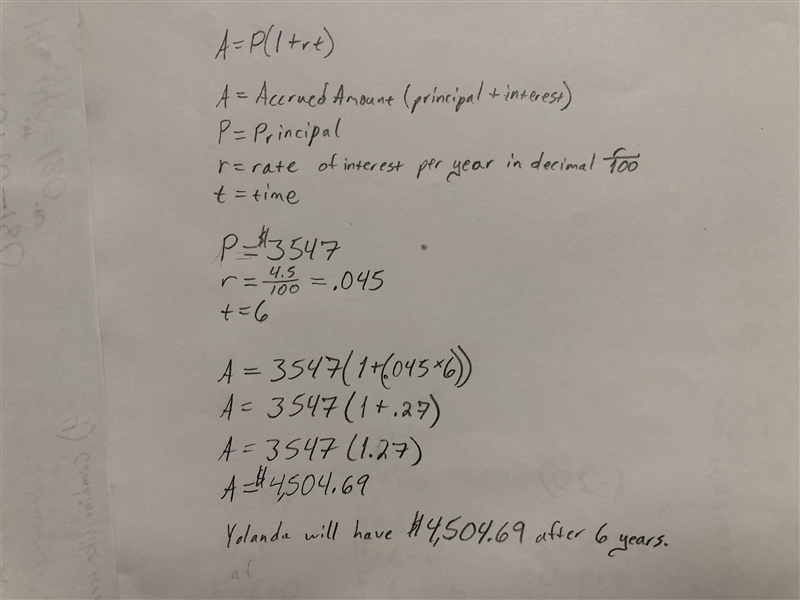 A = P(1+rt)
A = Accrued Amount (principal + interest)
P = Principal
r = rate of interest per year in decimal r/100
t = time
P = $3547
r = 4.5/100 = .045
t = 6
A = 3547(1+(.045×6))
A = 3547(1+.27)
A = 3547(1.27)
A = $4,504.69
Yolanda will have $4,504.69 after 6 years.